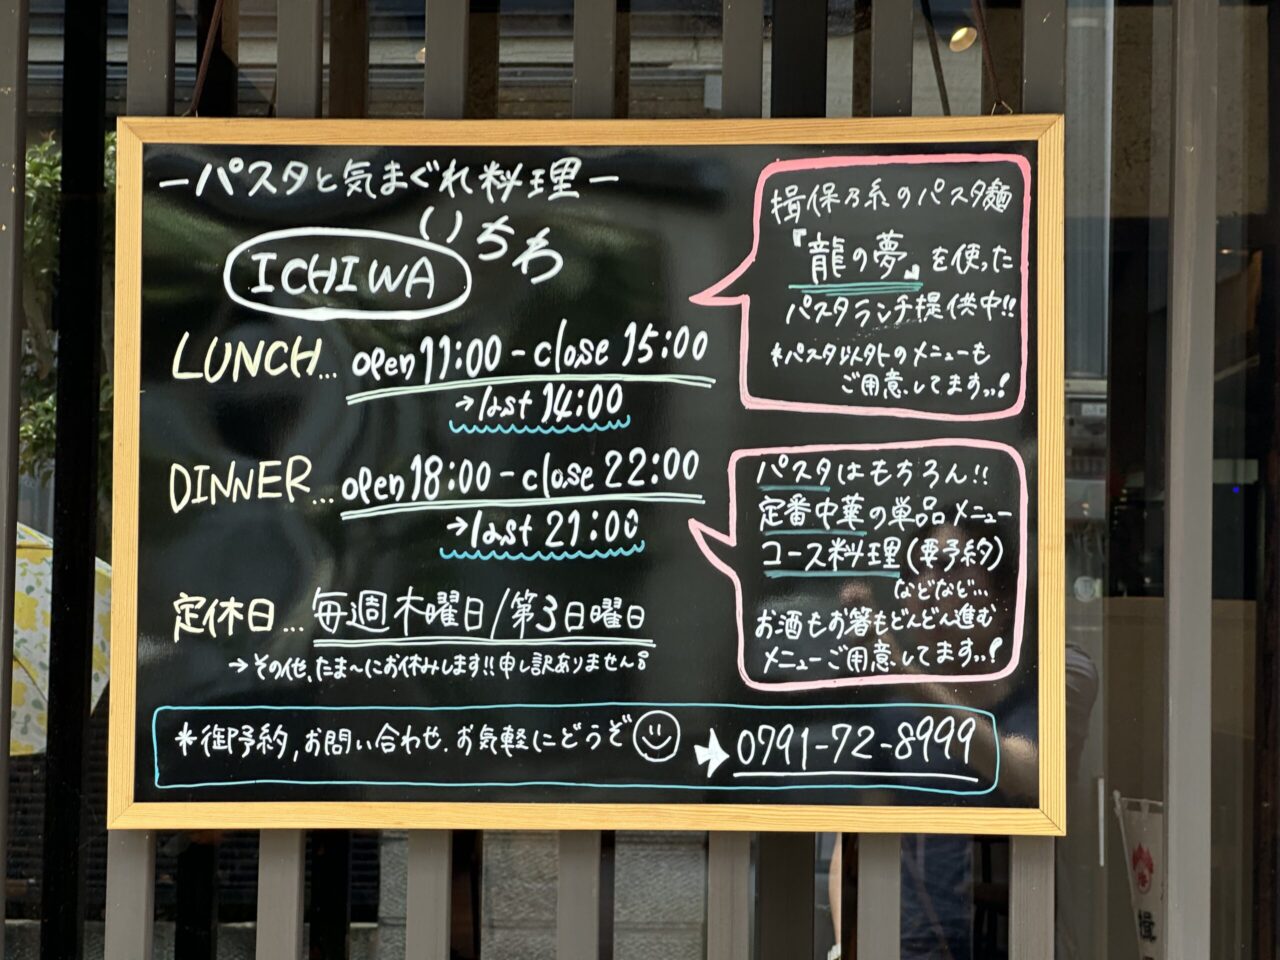 ーパスタと気まぐれ料理ー
いちわ
ICHIWA
LUNCH... open 11:00 - close 15:00
→last 14:00
DINNER... open 18:00 - close 22:00
→last 21:00
定休日... 毎週木曜日/第3日曜日
→その他、たま〜にお休みします!!申し訳ありません。
揖保乃糸のパスタ麺
『龍の夢』を使った
パスタランチ提供中!!
*パスタ以外のメニューも
ご用意してます♪!
パスタはもちろん!!
定番中華の単品メニュー
コース料理(要予約)
などなど...
お酒もお箸もどんどん進む
メニューご用意してます♪!
*御予約,お問い合わせ.お気軽にどうぞ → 0791-72-8999
揖